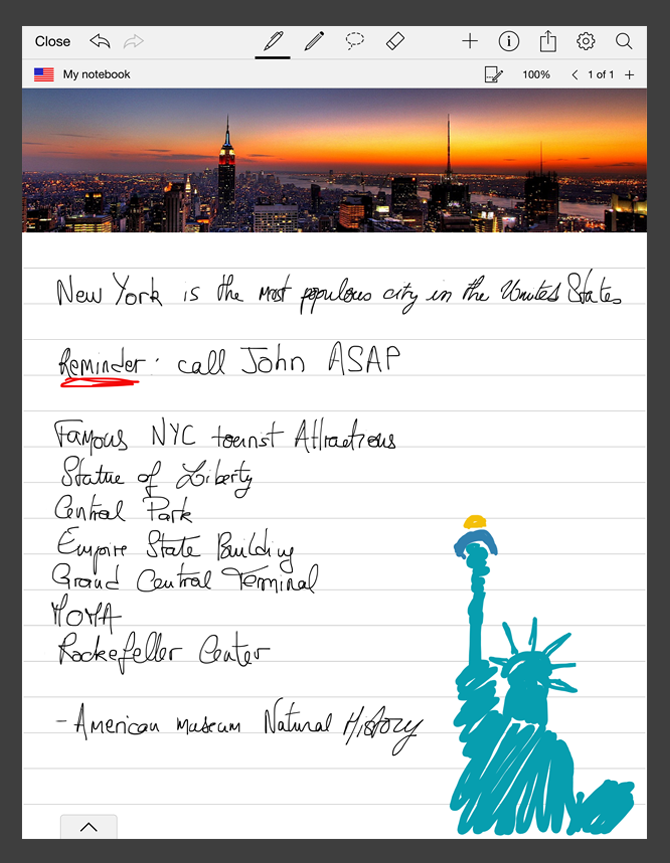 Close
My notebook
100%
1 of 1
New York is the most populous city in the United States
Reminder: call John ASAP
Famous NYC tourist Attractions
Statue of Liberty
Central Park
Empire State Building
Grand Central Terminal
MOMA
Rockefeller Center
- American museum Natural History